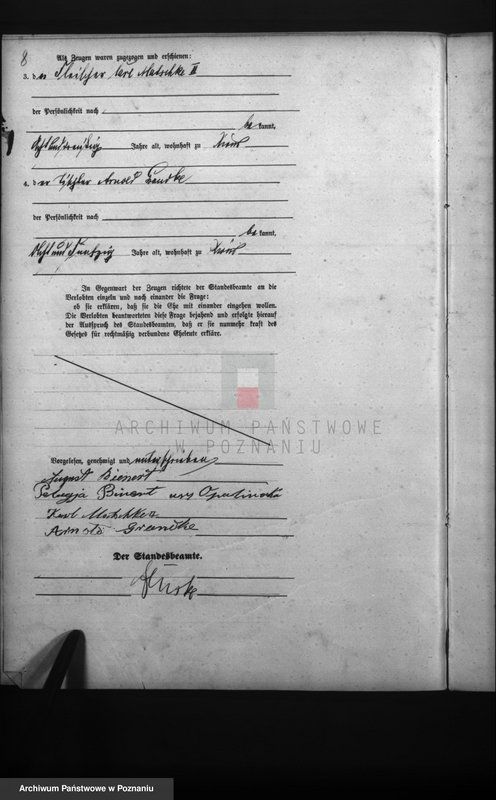 8
Als Zeugen waren zugezogen und erschienen:
3. der Fleischer Carl Matschke II
der Persönlichkeit nach
be kannt,
Jahre alt, wohnhaft zu
4. der Tischler Arnold
der Persönlichkeit nach
be kannt,
Acht und Jahre alt, wohnhaft zu
In Gegenwart der Zeugen richtete der Standesbeamte an die
Verlobten einzeln und nach einander die Frage:
ob sie erklären, daß sie die Ehe mit einander eingehen wollen.
Die Verlobten beantworteten diese Frage bejahend und erfolgte hierauf
der Ausspruch des Standesbeamten, daß er sie nunmehr kraft des
Gesetzes für rechtmäßig verbundene Eheleute erkläre.
ARCHIWUM PAŃSTWOWE
W POZNANIU
Vorgelesen, genehmigt und unterschrieben
August Bienert
Pelagja Binert
Karl Matschke
Arnold
Der Standesbeamte.
Archiwum Państwowe w Poznaniu